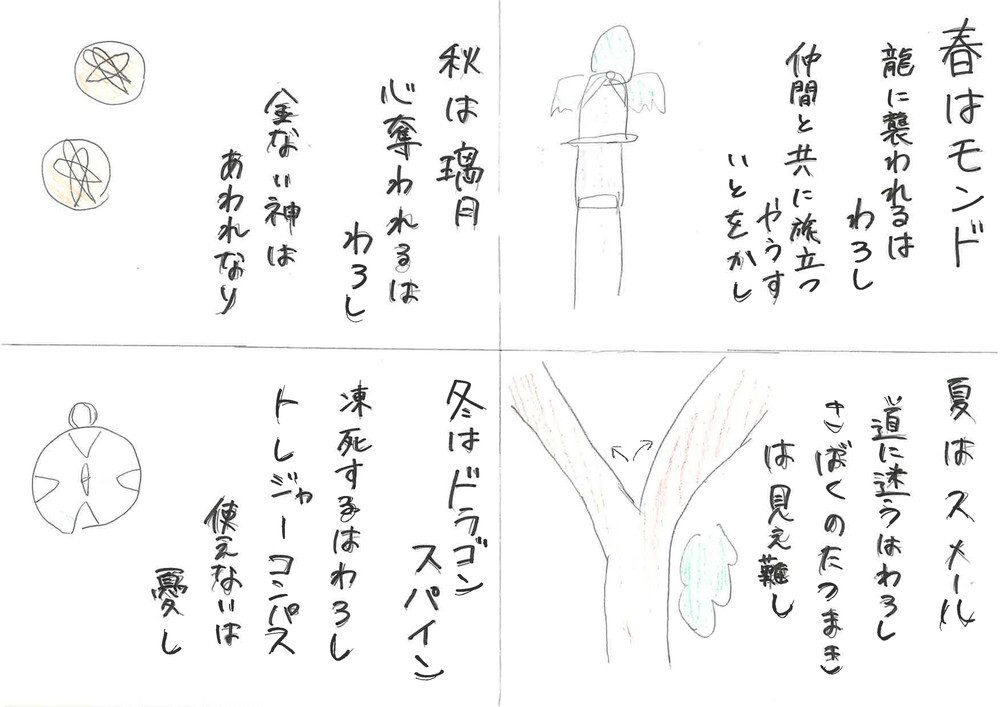 春はモンド
龍に襲われるは
わろし
仲間と共に旅立つ
やうす
いとをかし
夏はスメール
道に迷うはわろし
さばくのたつまき
は見え難し
秋は璃月
心奪われるは
わろし
金ない神は
あわれなり
冬はドラゴン
スパイン
凍死するはわろし
トレジャーコンパス
使えないは
憂し